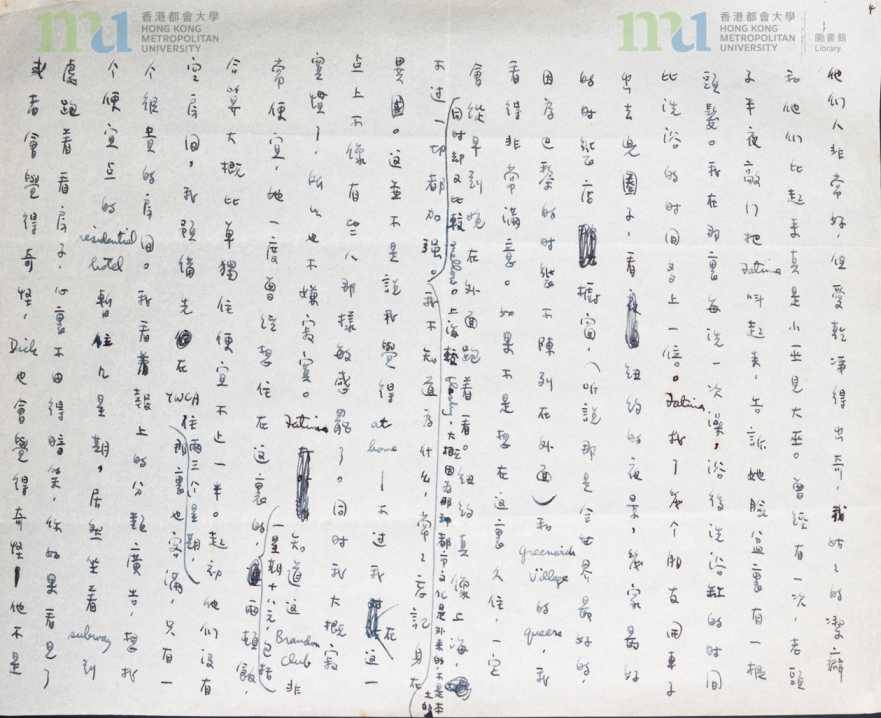 香港都會大學
HONG KONG
METROPOLITAN
UNIVERSITY
香港都會大學
HONG KONG
METROPOLITAN
UNIVERSITY
圖書館
Library
他们人非常好但愛乾淨得出奇，我姑姑的潔癖
和他们比起来真是小巫見大巫。曾經有一次，老頭
子半夜敲门把Fatima叫起来，告訴她臉盆裏有一根
頭髮。我在那裏每洗一次澡，浴後洗浴缸的时间
比洗浴的时间多上一倍。Fatima找了幾个朋友用車子
出去兜圈子，看紐約的夜景，幾家最好
的时裝店櫥窗，（听說那是全世界最好的，
因為巴黎的时裝不陳列在外面）和Greenwich Village的queers，我
看得非常滿意。如果不是想在這裏久住，一定
會從早到晚在外面跑着看。紐約真像上海，
同时却又比較
上海較
大概因為那种都市文化是外来的，不是本土的
不过一切都加强。我不知道為什么，常常忘記身在
異國。這並不是說我覺得at home—不过我在這一
点上不像有些人那樣敏感罷了。同时我大概寂
寞慣了，所以也不嫌寂寞。Fatima知道這Brandon Club非
常便宜，她一度曾經想住在這裏的，一星期十八元，包括兩頓飯，
合算大概比單獨住便宜不止一半。起初他们没有
空房间，我預備先在YWCA住兩三个星期，那裏也客滿，只有一
个很貴的房间。我看着報上的分類廣告，想找
个便宜点的residential hotel暫住几星期，居然坐着subway到
處跑着看房子，心裏不由得暗笑，你如果看見了
或者會覺得奇怪，Dick也會覺得奇怪—他不是